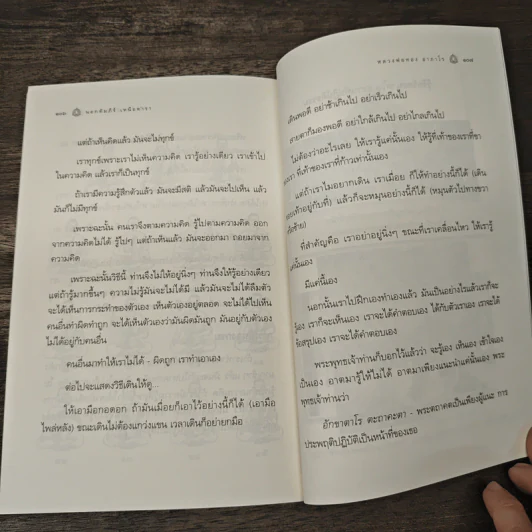 ๑๓๒ นอกคัมภีร์ เหนือตำรา
แต่ถ้าเห็นคิดแล้ว มันจะไม่ทุกข์
เราทุกข์เพราะเราไม่เห็นความคิด เรารู้อย่างเดียว เราเข้าไป
ในความคิด แล้วเราก็เป็นทุกข์
ถ้าเรามีความรู้สึกตัวแล้ว มันจะมีสติ แล้วมันจะไปเห็น แล้ว
มันก็ไม่มีทุกข์
เพราะฉะนั้น คนเราจึงตามความคิด รู้ไปตามความคิด ออก
จากความคิดไม่ได้ รู้ไปๆ แต่ถ้าเห็นแล้ว มันจะออกมา ถอยมาจาก
ความคิด
เพราะฉะนั้นวิธีนี้ ท่านจึงไม่ให้อยู่นิ่งๆ ท่านจึงให้รู้อย่างเดียว
แต่ถ้ารู้มากขึ้นๆ ความไม่รู้มันจะไม่ได้มี แล้วมันจะไม่ได้ลืมตัว
จะได้เห็นการกระทำของตัวเอง เห็นตัวเองอยู่ตลอด จะไม่ได้ไปเห็น
คนอื่นทำผิดทำถูก จะได้เห็นตัวเองว่ามันผิดมันถูก มันอยู่กับตัวเอง
ไม่ได้อยู่กับคนอื่น
คนอื่นมาทำให้เราไม่ได้ - ผิดถูก เราทำเอาเอง
ต่อไปจะแสดงวิธีเดินให้ดู...
ให้เอามือกอดอก ถ้ามันเมื่อยก็เอาไว้อย่างนี้ก็ได้ (เอามือ
ไพล่หลัง) ขณะเดินไม่ต้องแกว่งแขน เวลาเดินก็อย่ายกมือ
หลวงพ่อทอง อาภากโร
เดินพอดี อย่าช้าเกินไป อย่าเร็วเกินไป
สายตาก็มองพอดี อย่าใกล้เกินไป อย่าไกลเกินไป
ไม่ต้องว่าอะไรเลย ให้เรารู้แค่นั้นเอง ให้รู้ที่เท้าของเราที่ขา
ของเรา ที่เท้าของเราที่ก้าวเท่านั้นเอง
แต่ถ้าเราไม่อยากเดิน เราเมื่อย ก็ให้ทำอย่างนี้ก็ได้ (เดิน
เท้าอยู่กับที่) แล้วก็จะหมุนอย่างนี้ก็ได้ (หมุนตัวไปทางขวา
ซ้าย)
ที่สำคัญคือ เราอย่าอยู่นิ่งๆ ขณะที่เราเคลื่อนไหว ให้เรารู้
แค่นี้เอง
มีแค่นี้เอง
นอกนั้นเราไปฝึกเองทำเองแล้ว มันเป็นอย่างไรแล้วเราก็จะ
รู้เอง เราก็จะเห็นเอง เราจะได้คำตอบเอง ได้กับตัวเราเอง เราจะได้
ข้อสรุปเอง เราจะได้คำตอบเอง
พระพุทธเจ้าท่านก็บอกไว้แล้วว่า จะรู้เอง เห็นเอง เข้าใจเอง
เป็นเอง อาตมารู้ให้ไม่ได้ อาตมาเพียงแนะนำแค่นั้นเอง พระ
พุทธเจ้าท่านว่า
อักขาตาโร ตะถาคะตา - พระตถาคตเป็นเพียงผู้แนะ การ
ประพฤติปฏิบัติเป็นหน้าที่ของเธอ